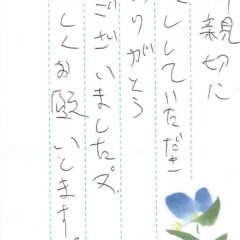 親切に
していただき
りがとう
ございました。又
しくお願いします。